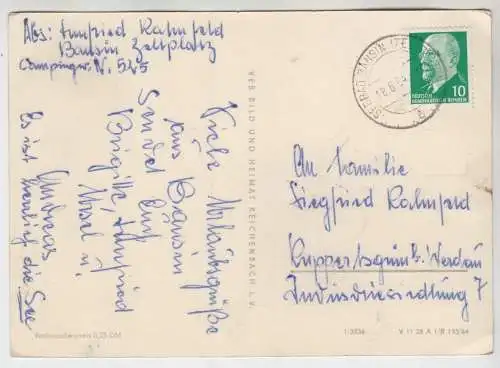 Abs: Manfried Rahnfeld
Bansin Zeltplatz
Campingw. N. 525
Viele Urlaubsgrüße
aus Bansin
sendet Euch
Brigitte, Manfried
Mosel u.
Andreas
Es ist herrlich die See
VEB BILD UND HEIMAT REICHENBACH I. V.
SEEBAD BANSIN
DEUTSCHE
DEMOKRATISCHE REPUBLIK
10
An Familie
Siegfried Rahnfeld
Ruppertsgrün b/ Werdau
Invasionssiedlung 7
0,25 DM
V 11 28 A 1/B 155/64